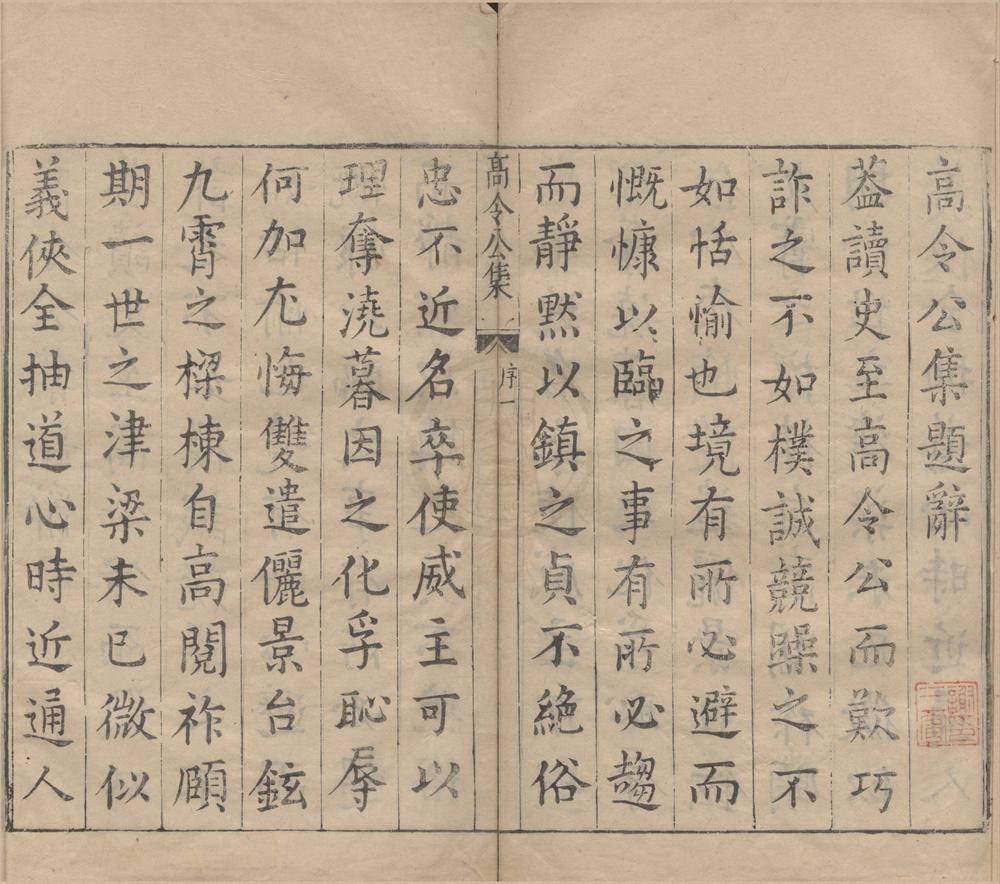 高令公集題辭
葢讀史至高令公而歎巧
詐之不如樸誠競躁之不
如恬愉也境有所必避而
慨慷以臨之事有所必趨
而靜默以鎮之貞不絕俗
髙令公集
序一
忠不近名卒使威主可以
理奪澆暮因之化孚恥辱
何加尤悔雙遣儷景台鉉
九霄之樑棟自高閱祚頤
期一世之津梁未已微似
義俠全抽道心時近通人